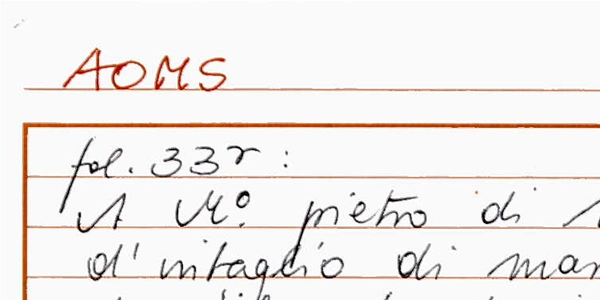 AOMS
fol. 33r:
A Mº. pietro di
d'intaglio di